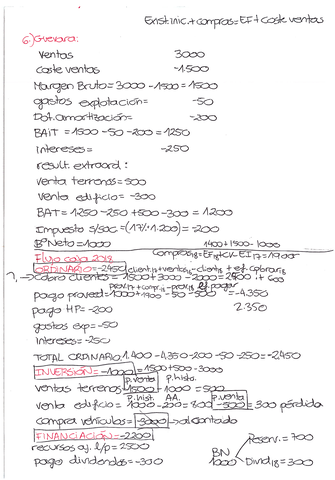 Exist. inic. + compras = EF + coste ventas
6.) Guevara:
ventas 3000
coste ventas -1500
Margen Bruto = 3000 - 1500 = 1500
gastos explotación = -50
Dot. amortización = -200
BAIT = 1500 - 50 - 200 = 1250
Intereses = -250
result. extraord:
venta terrenos = 500
venta edificio = -300
BAT = 1250 - 250 + 500 - 300 = 1.200
Impuesto s/soc = (17% · 1.200) = -200
Bº Neto = 1000
1400 + 1500 - 1000
Flujo caja 2018
compras18 = EF18 + CV - EI17 = 1900
ORDINARIO = -2450
client.17 + ventas18 - client18 + ef. cobrar18
cobro clientes = 1000 + 3000 - 2000 = 2400 + 600
prov.17 + compr.18 - prov18 ef. pagar
pago proveed = 1000 + 1900 - 50 - 500 = -4.350
pago HP = -200
2.350
gastos exp = -50
Intereses = -250
TOTAL ORDINARIO 1.400 - 4.350 - 200 - 50 - 250 = -2.450
INVERSIÓN = -1000 = 1500 + 500 - 3000
p. venta p. hist.
ventas terrenos 1500 - 1000 = 500
p. hist. AA. p. venta
venta edificio = 1000 - 200 = 800 - 500 = 300 pérdida
compra vehículos = -3000 → al contado
FINANCIACIÓN = -2200
Reserv. = 700
recursos aj. l/p = 2500
BN
1000
Divid18 = 300
pago dividendos = -300